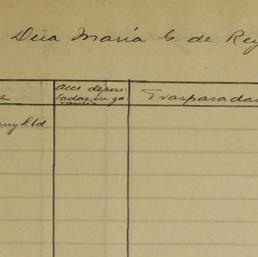 Dcia María C. de Rey
e
Accs deposi-
tadas en ga
rantía
Traspasadas
ny Ltd.